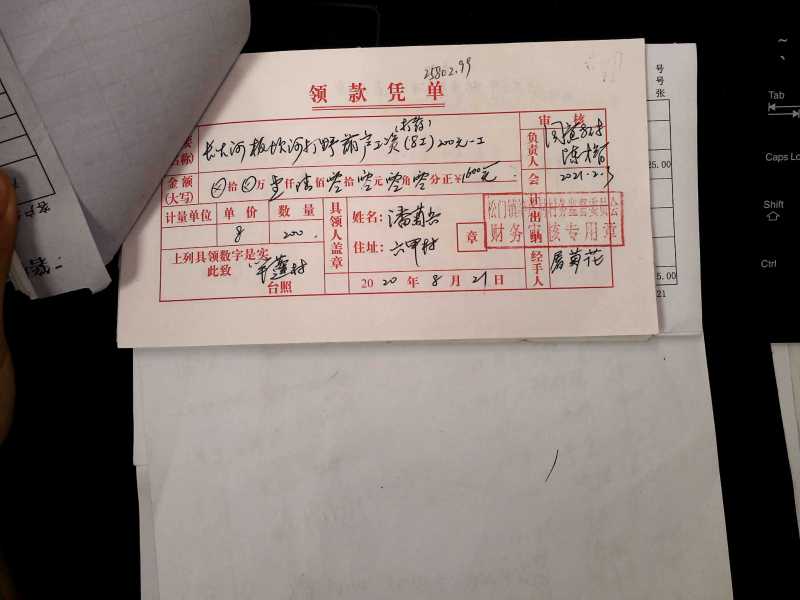 25802.99
领款凭单
审核
(打药)
名称)
长大河 板坎河打野葫芦工资(8工)200元一工
负责人
金额
(大写)
⊗拾⊗万壹仟陆佰零拾零元零角零分正¥1600元
会计
2021.2.3
计量单位 单价 数量
具领人盖章
姓名:潘菊兵
出纳
财务审核专用章
8 200
住址:六甲村
章
上列具领数字是实
此致
台照
2020年8月21日
经手人
屠菊花
号
号
张
25.00
5.00
21
Tab
Caps Lo
Shift
Ctrl